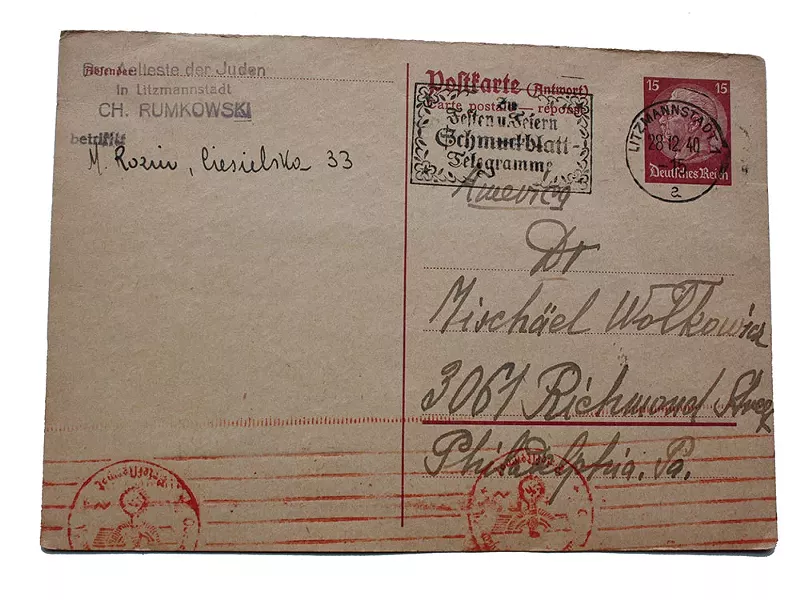 Absender
Der Aelteste der Juden
in Litzmannstadt
CH. RUMKOWSKI
betrifft:
M. Rozin, Ciesielska 33
Postkarte (Antwort)
Carte postale — réponse
Zu
Festen u. Feiern
Schmuckblatt-
Telegramme
15 15
Deutsches Reich
LITZMANNSTADT
28.12.40
a
America
Dr
Mischäel Wolkowicz
3061 Richmond Street
Philadelphia. Pa.